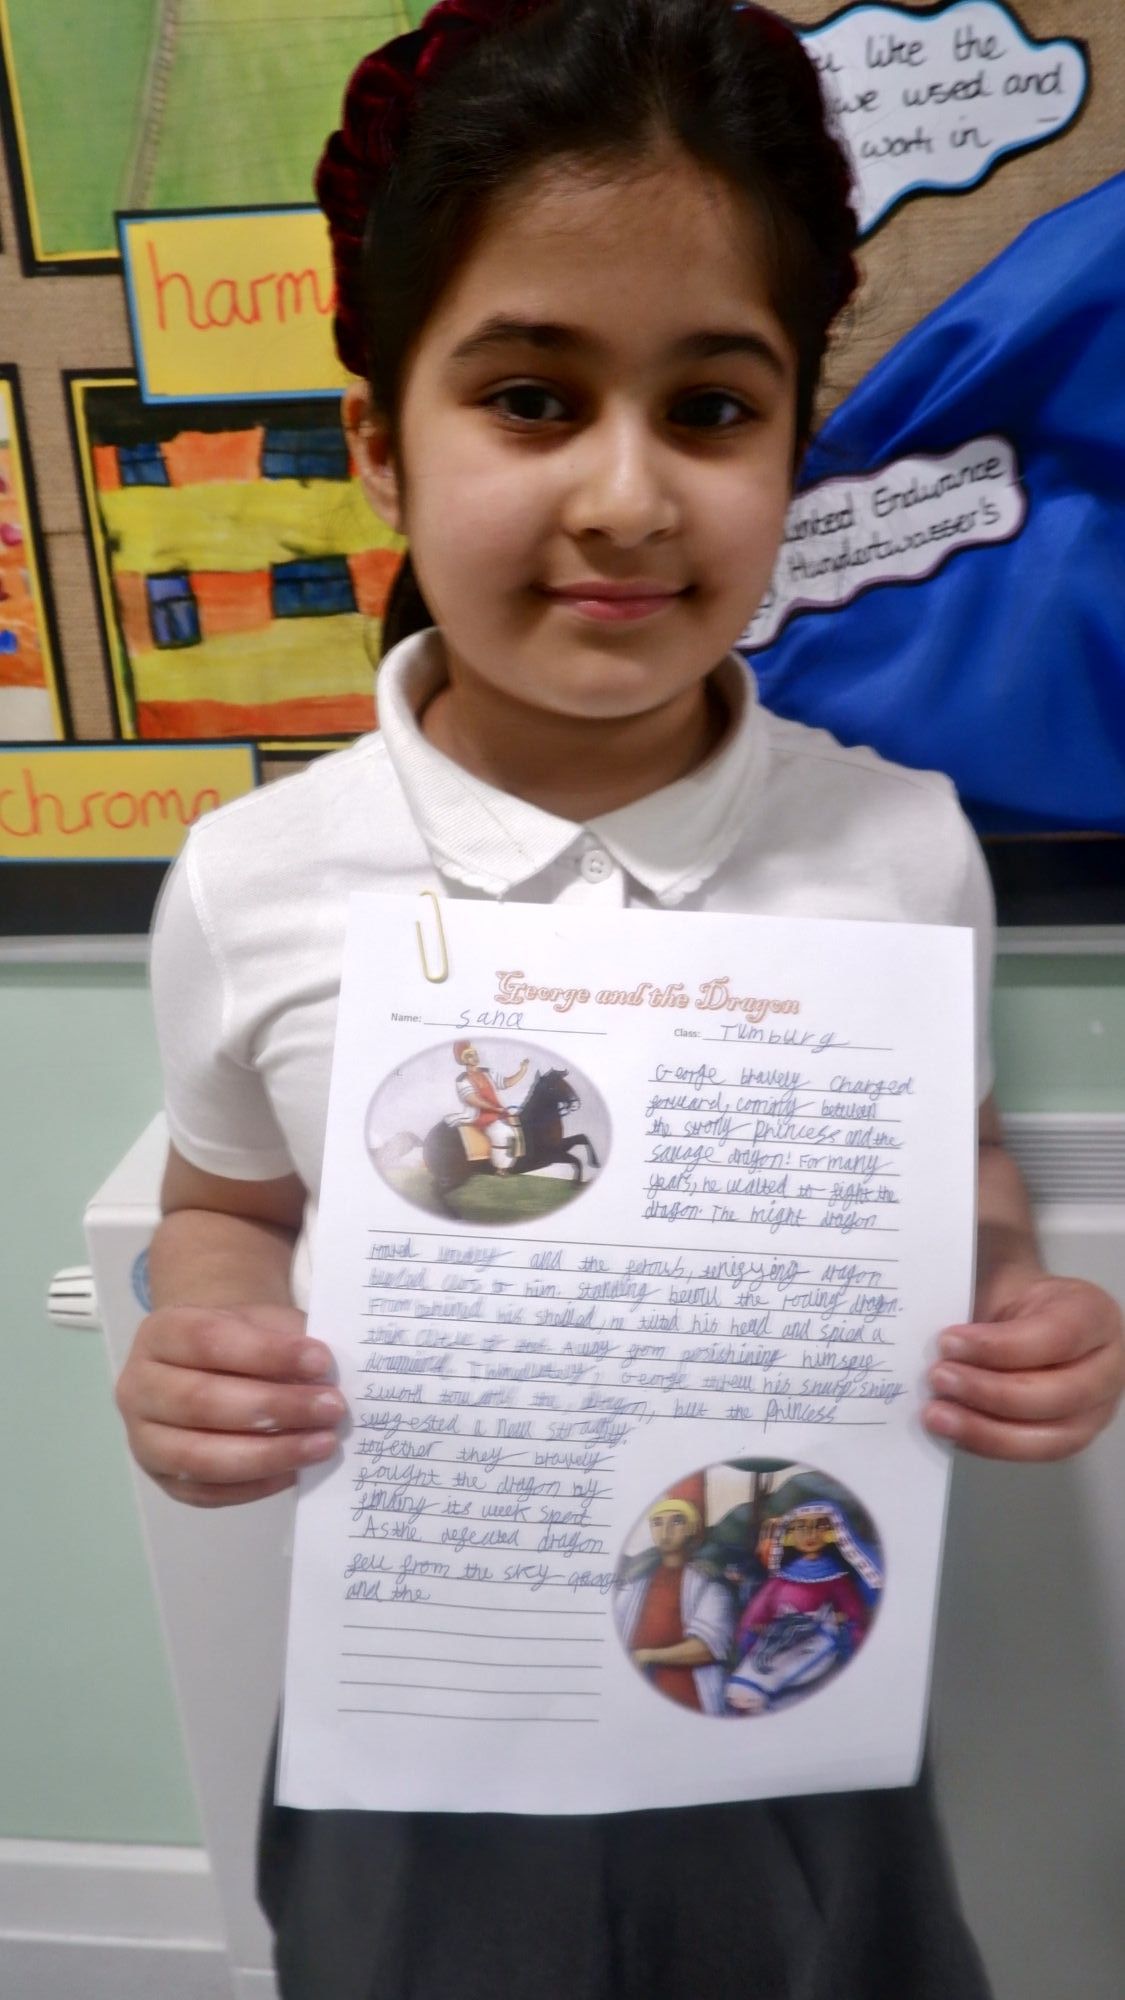 u like the
we used and
work in
harm
inted Endurance
Hundertwasser's
chroma
George and the Dragon
Name: Sana
Class: Tumburg
George bravely charged
forward, coming between
the strong princess and the
savage dragon! For many
years, he waited to fight the
dragon. The might dragon
and the dragon
to him. standing the roaring dragon.
From his he tilted his head and spied a
Away from himself
George threw his sharp, shiny
sword the but the princess
suggested a new
together they bravely
fought the dragon by
finding its week spot
As the defeated dragon
fell from the sky george
and the